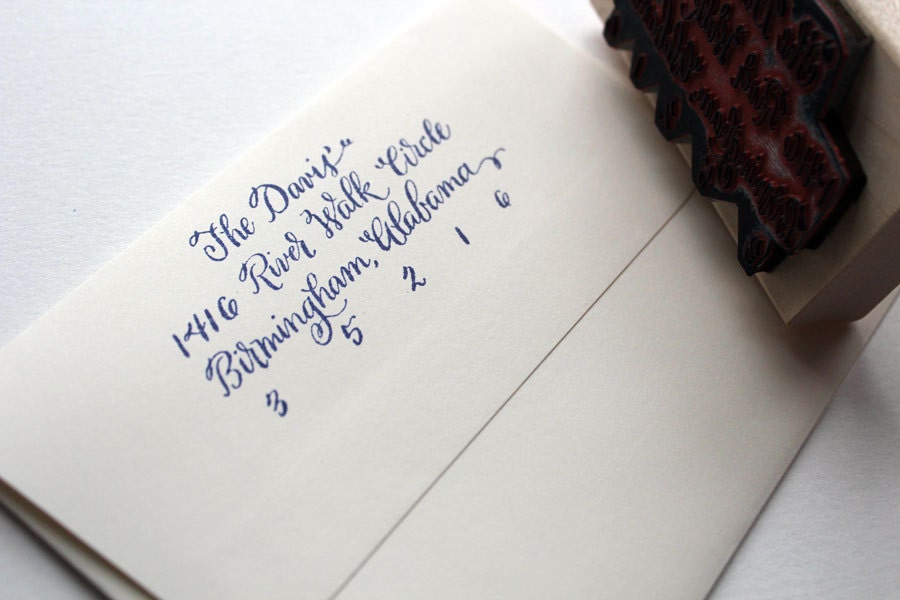 The Davis'
1416 River Walk Circle
Birmingham, Alabama
3 5 2 1 6